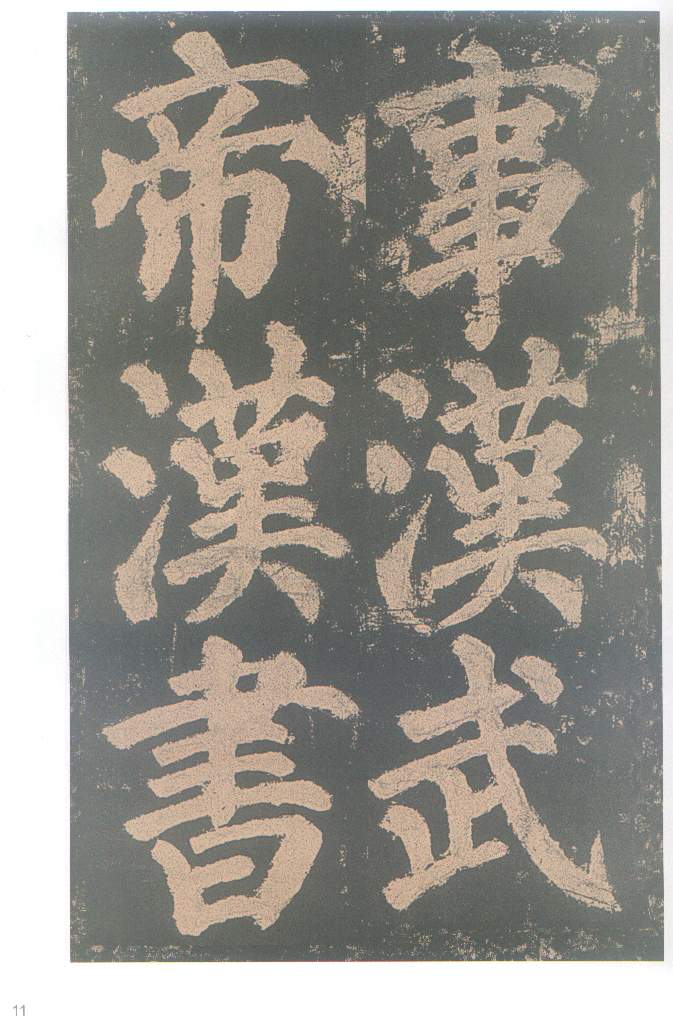 事漢武
帝漢書
11